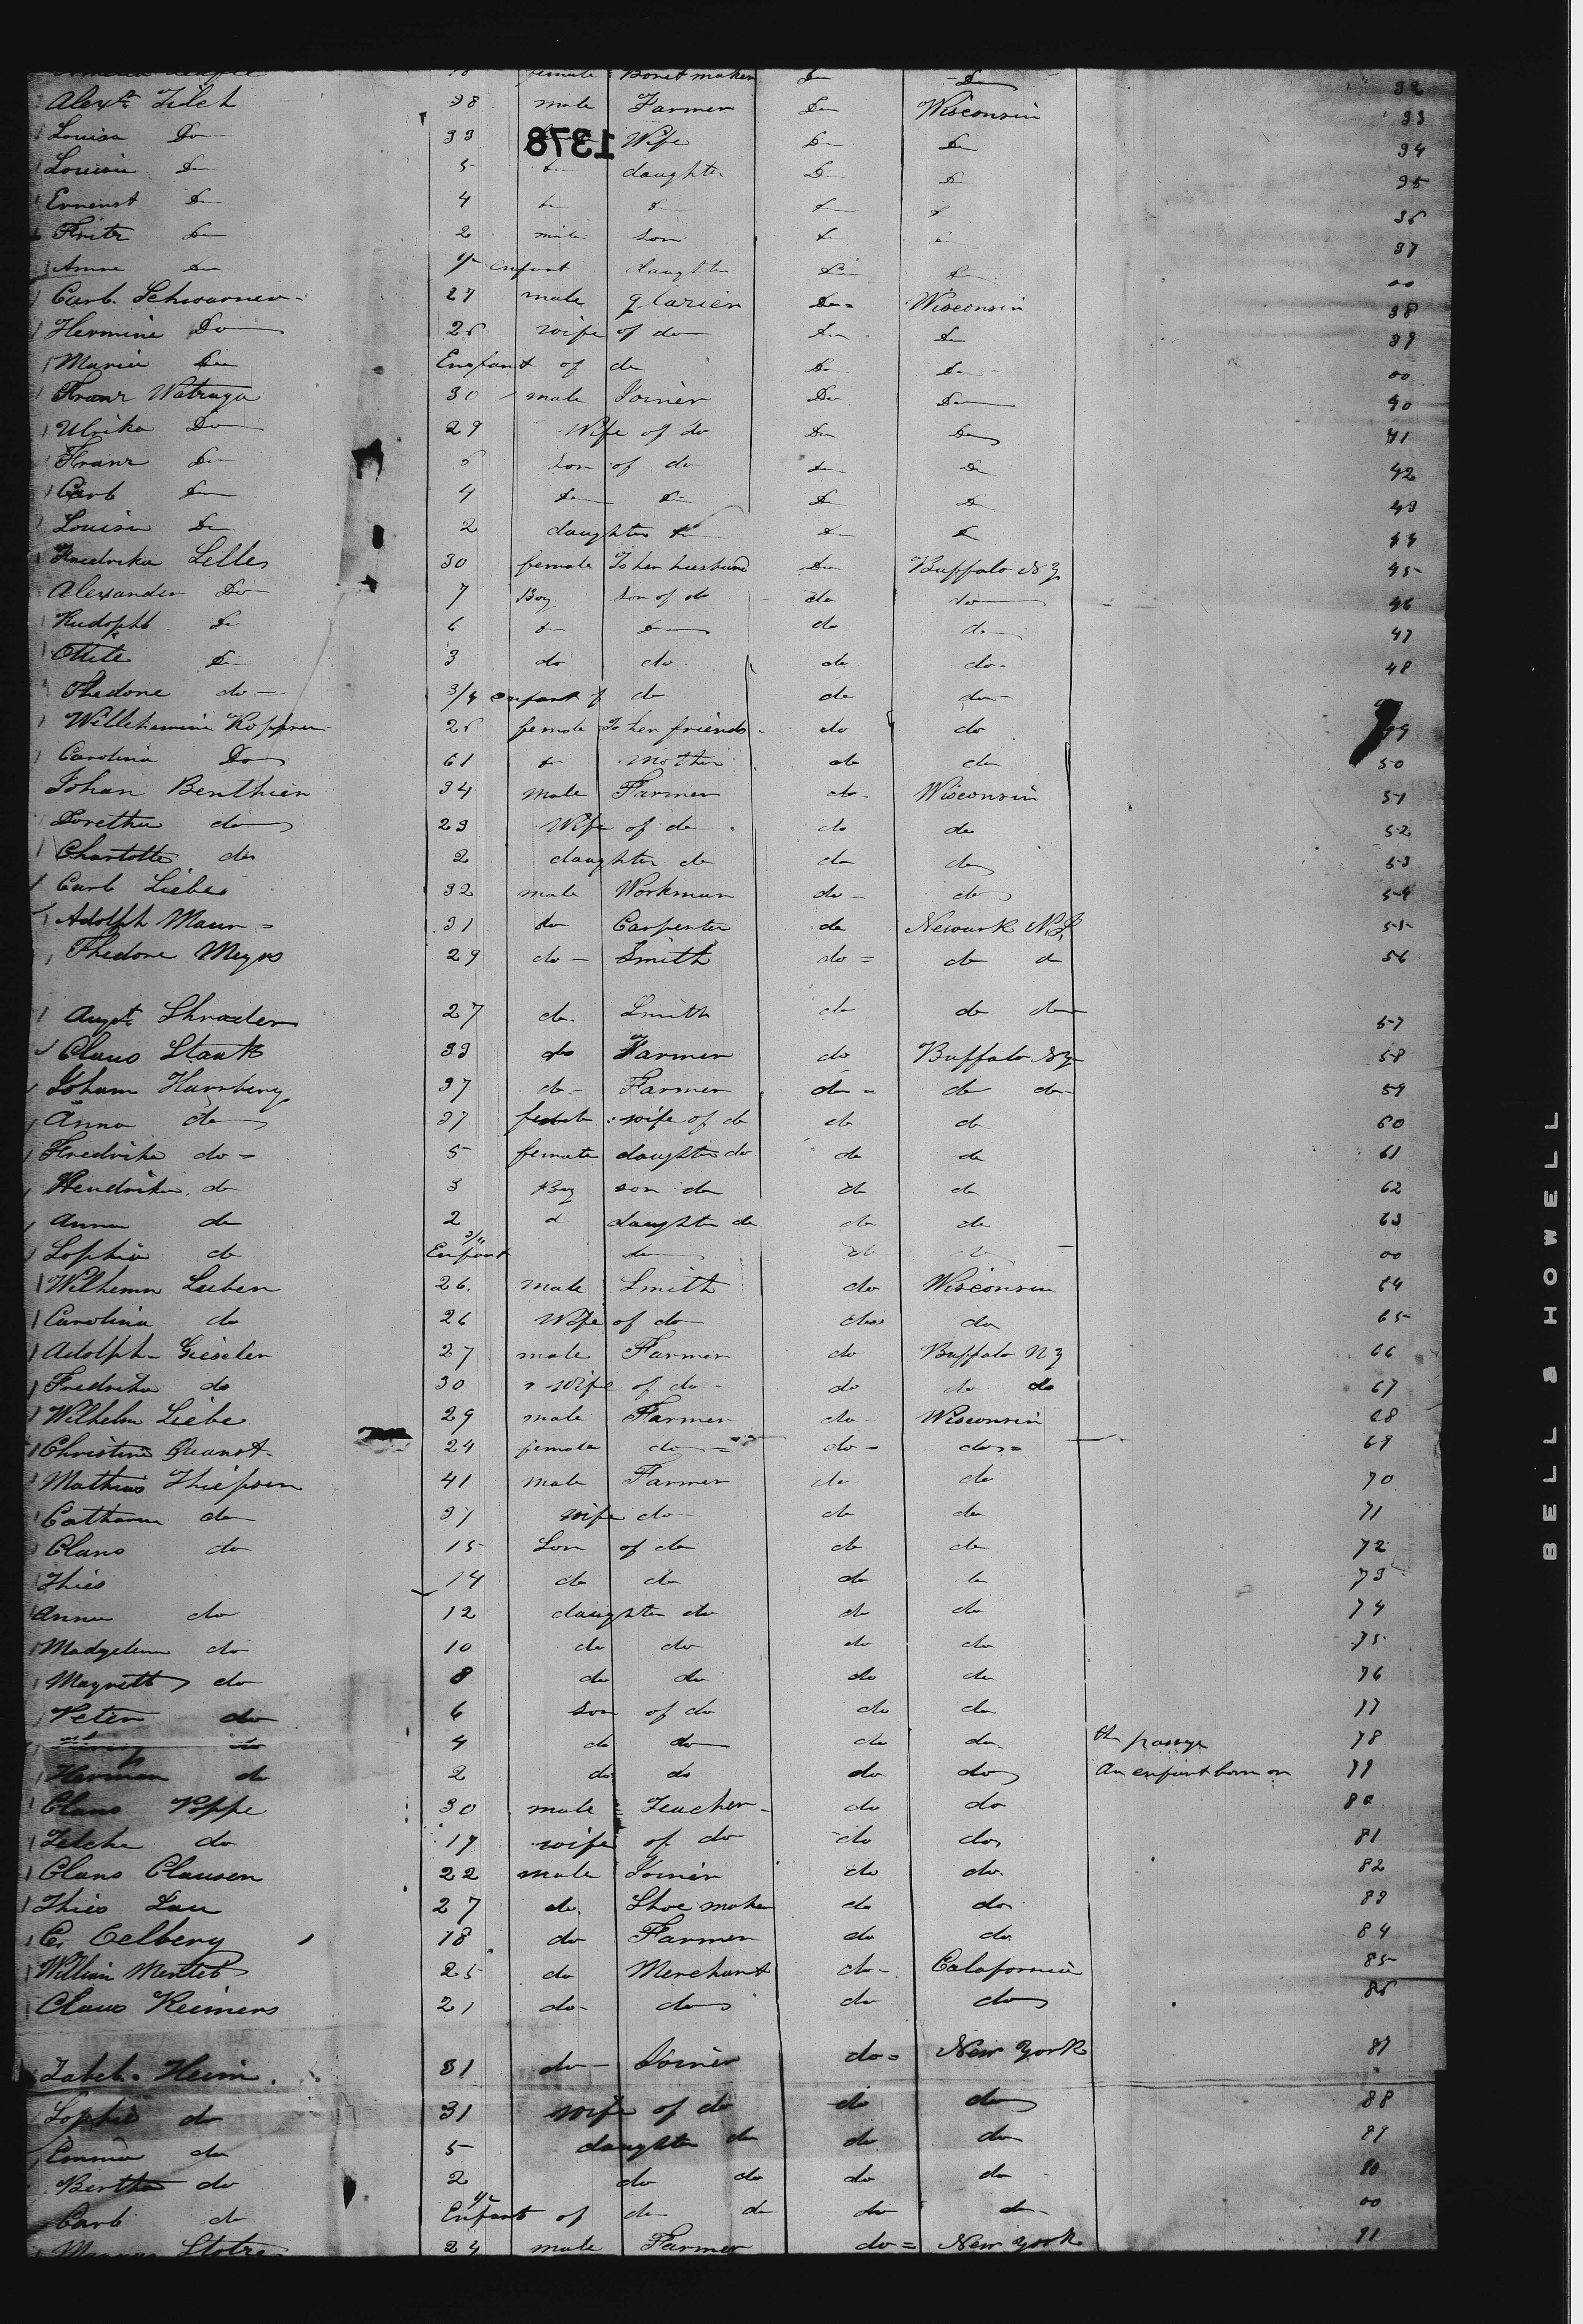 female Bonet maker Do Do 32
Alexr. Zilch 38 male Farmer Do Wisconsin 33
Louisa Do 33 Wife Do Do 34
1378
Louisia Do 5 Do daughter Do Do 35
Ernenst Do 4 Do Do Do Do 36
Fritz Do 2 male son Do Do 37
Anna Do enfant daughter Do Do 00
Carl Schwarner 27 male glazier Do = Wisconsin 38
Hermine Do 26 wife of do Do Do 39
Maria Do Enfant of do Do Do 00
Franz Watruga 30 male Joiner Do Do 40
Ulrika Do 29 Wife of do Do Do 41
Franz Do 6 son of do Do Do 42
Carl Do 4 Do Do Do Do 43
Louisa Do 2 daughter Do Do Do 44
Fredrika Lelles 30 female To her husband Do Buffalo N Y 45
Alexander Do 7 Boy son of do do do 46
Rudolph Do 6 Do Do do do 47
Ottile Do 3 do do do do 48
Thedore do 3/4 enfant of do do do
Willehemina Koppner 26 female To her friends do do 49
Carolina Do 61 do mother do do 50
Johan Benthien 34 male Farmer do Wisconsin 51
Dorethea do 23 Wife of do do do 52
Charlotte do 2 daughter do do do 53
Carl Liebes 32 male Workman do do 54
Adolph Maur 31 do Carpenter do Newark N.J. 55
Thedore Meyes 29 do Smith do = do do 56
Augst. Shrader 27 do Smith do do do 57
Claus Stank 33 do Farmer do Buffalo NY 58
Joham Harrberg 37 do Farmer do = do do 59
Anna do 37 female wife of do do do 60
Fredrika do 5 female daughter do do do 61
Hendrika do 3 Boy son do do do 62
Anna do 2 d daughter do do do 63
Sophia do Enfant 3/4 do do do 00
Wilhemn Luben 26. male Smith do Wisconsin 64
Carolina do 26 Wife of do do do 65
Adolph Gieseler 27 male Farmer do Buffalo N Y 66
Fredrika do 30 wife of do do do do 67
Wilhelm Liebe 29 male Farmer do Wisconsin 68
Christine Quanst 24 female do = do = do = 69
Mathias Thiepsen 41 male Farmer do do 70
Catharn do 37 wife do do do 71
Claus do 15 Son of do do do 72
Thies 14 do do do do 73
Anna do 12 daughter do do do 74
Madgelena do 10 do do do do 75
Magreth do 8 do do do do 76
Peter do 6 son of do do do 77
do 4 do do do do the passage 78
Herman do 2 do do do do An enfant born on 79
Claus Poppe 30 male Teacher do do 80
Zelche do 17 wife of do do do 81
Claus Clausen 22 male Joiner do do 82
Thies Lau 27 do. Shoe maker do do 83
C. Oelberg 18 do Farmer do do 84
William Mentel 25 do Merchant do Calafornia 85
Claus Reimers 21 do do do do 86
Zabel. Heim. 31 do Joiner do = New York 87
Sophie do 31 wife of do do do 88
Emma do 5 daughter do do do 89
Bertha do 2 do do do do 90
Carl do Enfant 1/2 of do do do do 00
Stotze 24 male Farmer do = New York 91
BELL & HOWELL